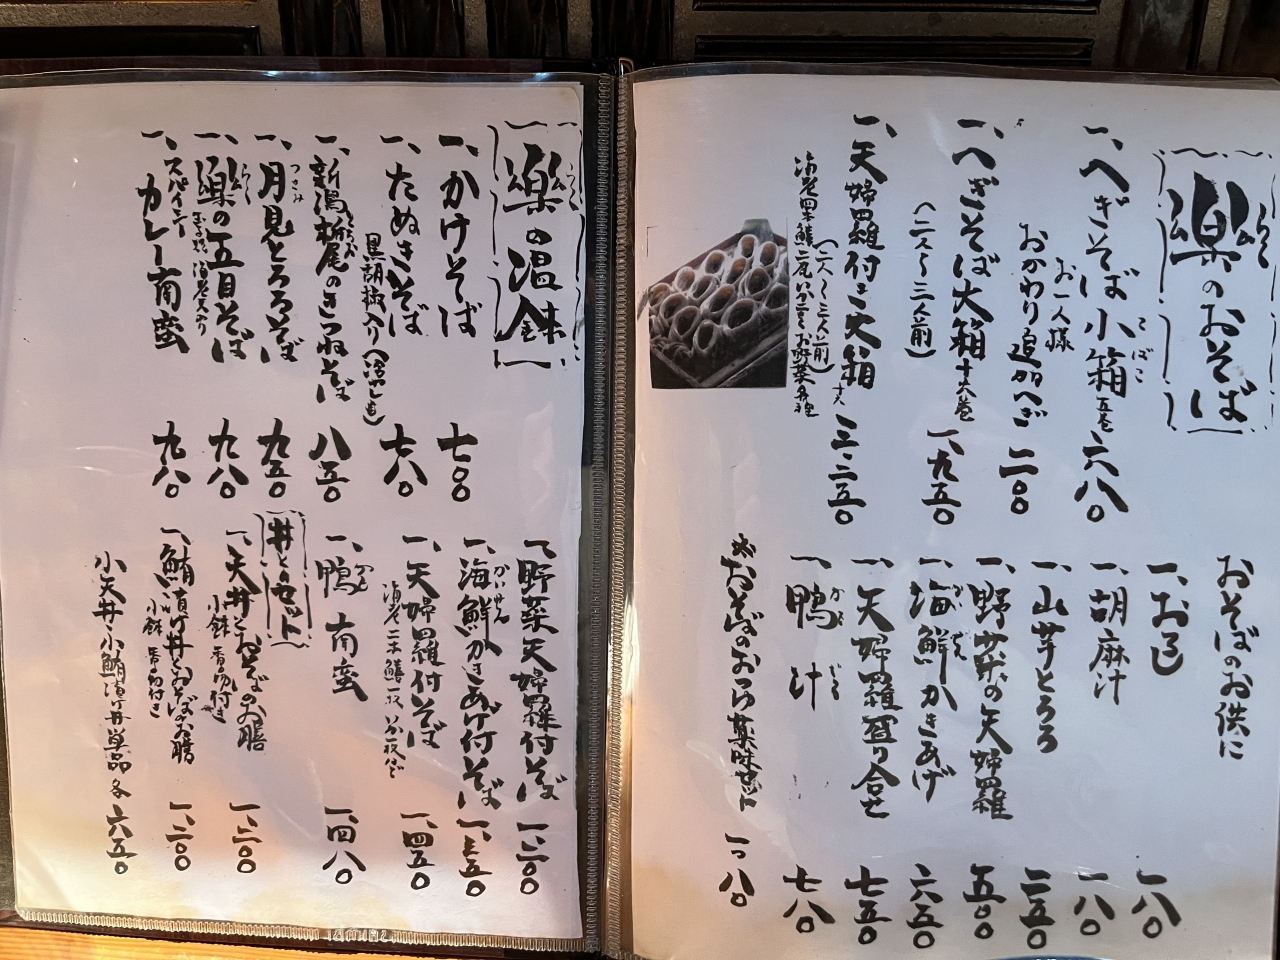 樂のおそば
らく
一、へぎそば小箱 五巻 六八〇
こばこ
お一人様
おかわり追加へぎ 二〇〇
一、へぎそば大箱 十六巻 一、九五〇
(二人〜三人前)
一、天婦羅付き大箱 三、二五〇
(二人〜三人前)
おそばのお供に
一、おろし 一八〇
一、胡麻汁 一八〇
一、山芋とろろ 二五〇
一、野菜の天婦羅 五〇〇
一、海鮮かきあげ 六五〇
かいせん
一、天婦羅盛り合せ 七五〇
一、鴨汁 七八〇
かもじる
※おそばのおつけ薬味セット 一八〇
樂の温麺
らく
一、かけそば 七〇〇
一、たぬきそば 七八〇
黒胡椒入り(冷やしも)
一、新潟栃尾のきつねそば 八五〇
とちお
一、月見とろろそば 九五〇
つきみ
一、樂の五目そば 九八〇
らく
一、スパイシーカレー南蛮 九八〇
一、野菜天婦羅付そば 一、二〇〇
一、海鮮かきあげ付そば 一、三五〇
かいせん
一、天婦羅付そば 一、四五〇
一、鴨南蛮 一、四八〇
かも
丼とのセット
一、天丼とおそばのお膳 一、二〇〇
小鉢 香の物付き
一、鮪漬け丼とおそばのお膳 一、二〇〇
小鉢 香の物付き
小天丼 小鮪漬け丼 単品各 六五〇